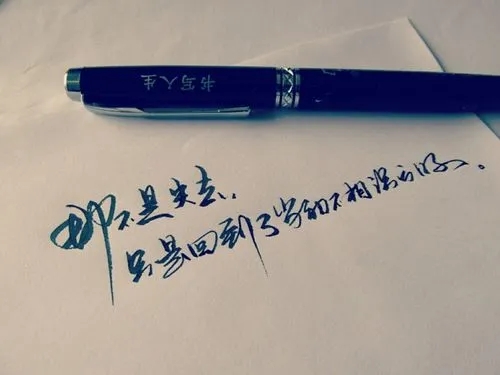 书写人生
那不是失去,
只是回到了当初不相识之时。